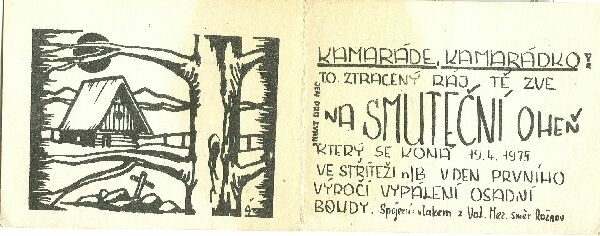 KAMARÁDE, KAMARÁDKO!
T.O. ZTRACENÝ RÁJ TĚ ZVE
JEN PRO ZVANÉ
NA SMUTEČNÍ OHEŇ
KTERÝ SE KONÁ 19.4.1975
VE STŘÍTEŽI n/B V DEN PRVNÍHO
VÝROČÍ VYPÁLENÍ OSADNÍ
BOUDY. Spojení: vlakem z Val. Mez. směr Rožnov